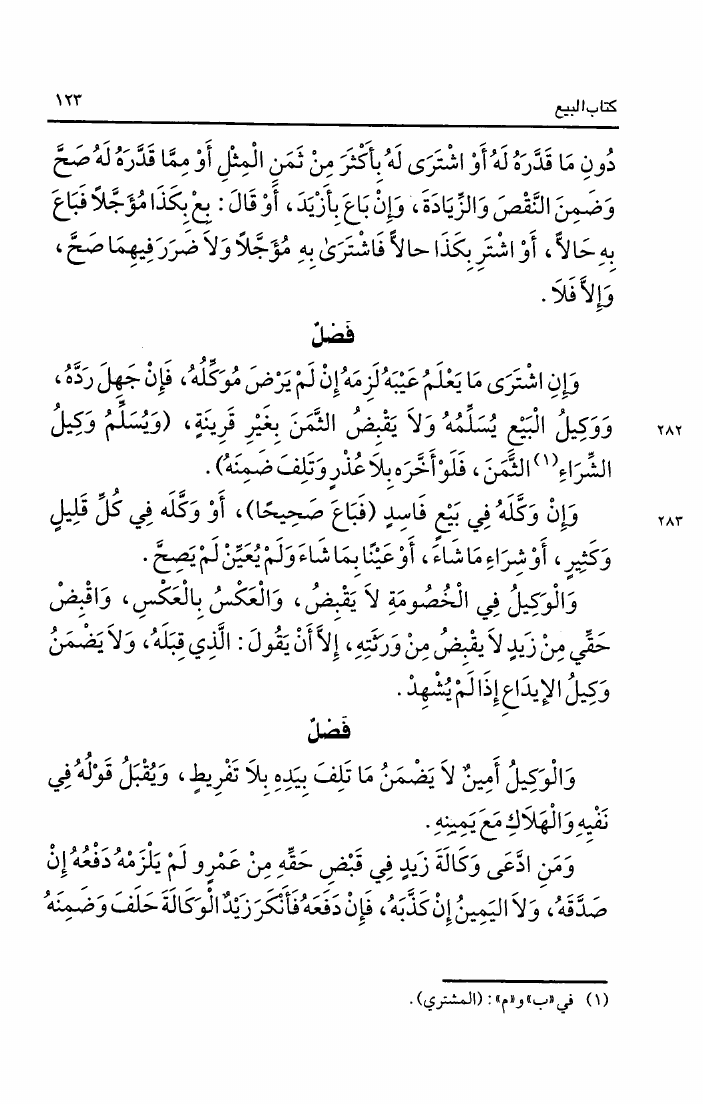 كتاب البيع ١٢٣
دُونِ مَا قَدَّرَهُ لَهُ أَوْ اشْتَرَى لَهُ بِأَكْثَرَ مِنْ ثَمَنِ الْمِثْلِ أَوْ مِمَّا قَدَّرَهُ لَهُ صَحَّ
وَضَمِنَ النَّقْصَ وَالزِّيَادَةَ، وَإِنْ بَاعَ بِأَزْيَدَ، أَوْ قَالَ: بِعْ بِكَذَا مُؤَجَّلاً فَبَاعَ
بِهِ حَالاًّ، أَوْ اشْتَرِ بِكَذَا حالاًّ فَاشْتَرَىٰ بِهِ مُؤَجَّلاً وَلاَ ضَرَرَ فِيهِمَا صَحَّ،
وَإِلاَّ فَلاَ.
فَصْلٌ
وَإِنِ اشْتَرَى مَا يَعْلَمُ عَيْبَهُ لَزِمَهُ إِنْ لَمْ يَرْضَ مُوَكِّلُهُ، فَإِنْ جَهِلَ رَدَّهُ،
وَوَكِيلُ الْبَيْعِ يُسَلِّمُهُ وَلاَ يَقْبِضُ الثَّمَنَ بِغَيْرِ قَرِينَةٍ، (وَيُسَلِّمُ وَكِيلُ ٢٨٢
الشِّرَاءِ(١) الثَّمَنَ، فَلَوْ أَخَّرَه بِلاَ عُذْرٍ وَتَلِفَ ضَمِنَهُ).
وَإِنْ وَكَّلَهُ فِي بَيْعٍ فَاسِدٍ (فَبَاعَ صَحِيحًا)، أَوْ وَكَّلَه فِي كُلِّ قَلِيلٍ ٢٨٣
وَكَثِيرٍ، أَوْ شِرَاءِ مَا شَاءَ، أَوْ عَيْنًا بِمَا شَاءَ وَلَمْ يُعَيِّنْ لَمْ يَصِحَّ.
وَالْوَكِيلُ فِي الْخُصُومَةِ لاَ يَقْبِضُ، وَالْعَكْسُ بِالْعَكْسِ، وَاقْبِضْ
حَقِّي مِنْ زَيِدٍ لاَ يقْبِضُ مِنْ وَرَثَتِهِ، إِلاَّ أَنْ يَقُولَ: الَّذِي قِبَلَهُ، وَلاَ يَضْمَنُ
وَكِيلُ الإِيدَاعِ إِذَا لَمْ يُشْهِدْ.
فَصْلٌ
وَالْوَكِيلُ أَمِينٌ لاَ يَضْمَنُ مَا تَلِفَ بِيَدِهِ بِلاَ تَفْرِيطٍ، وَيُقْبَلُ قَوْلُهُ فِي
نَفْيِهِ وَالْهَلاَكِ مَعَ يَمِينِهِ.
وَمَنِ ادَّعَى وَكَالَةَ زَيِدٍ فِي قَبْضِ حَقِّهِ مِنْ عَمْرٍو لَمْ يَلْزَمْهُ دَفْعُهُ إِنْ
صَدَّقَهُ، وَلاَ الْيَمِينُ إِنْ كَذَّبَهُ، فَإِنْ دَفَعَهُ فَأَنْكَرَ زَيْدٌ الْوَكَالَةَ حَلَفَ وَضَمِنَهُ
(١) في «ب» و«م»: (المشتري).